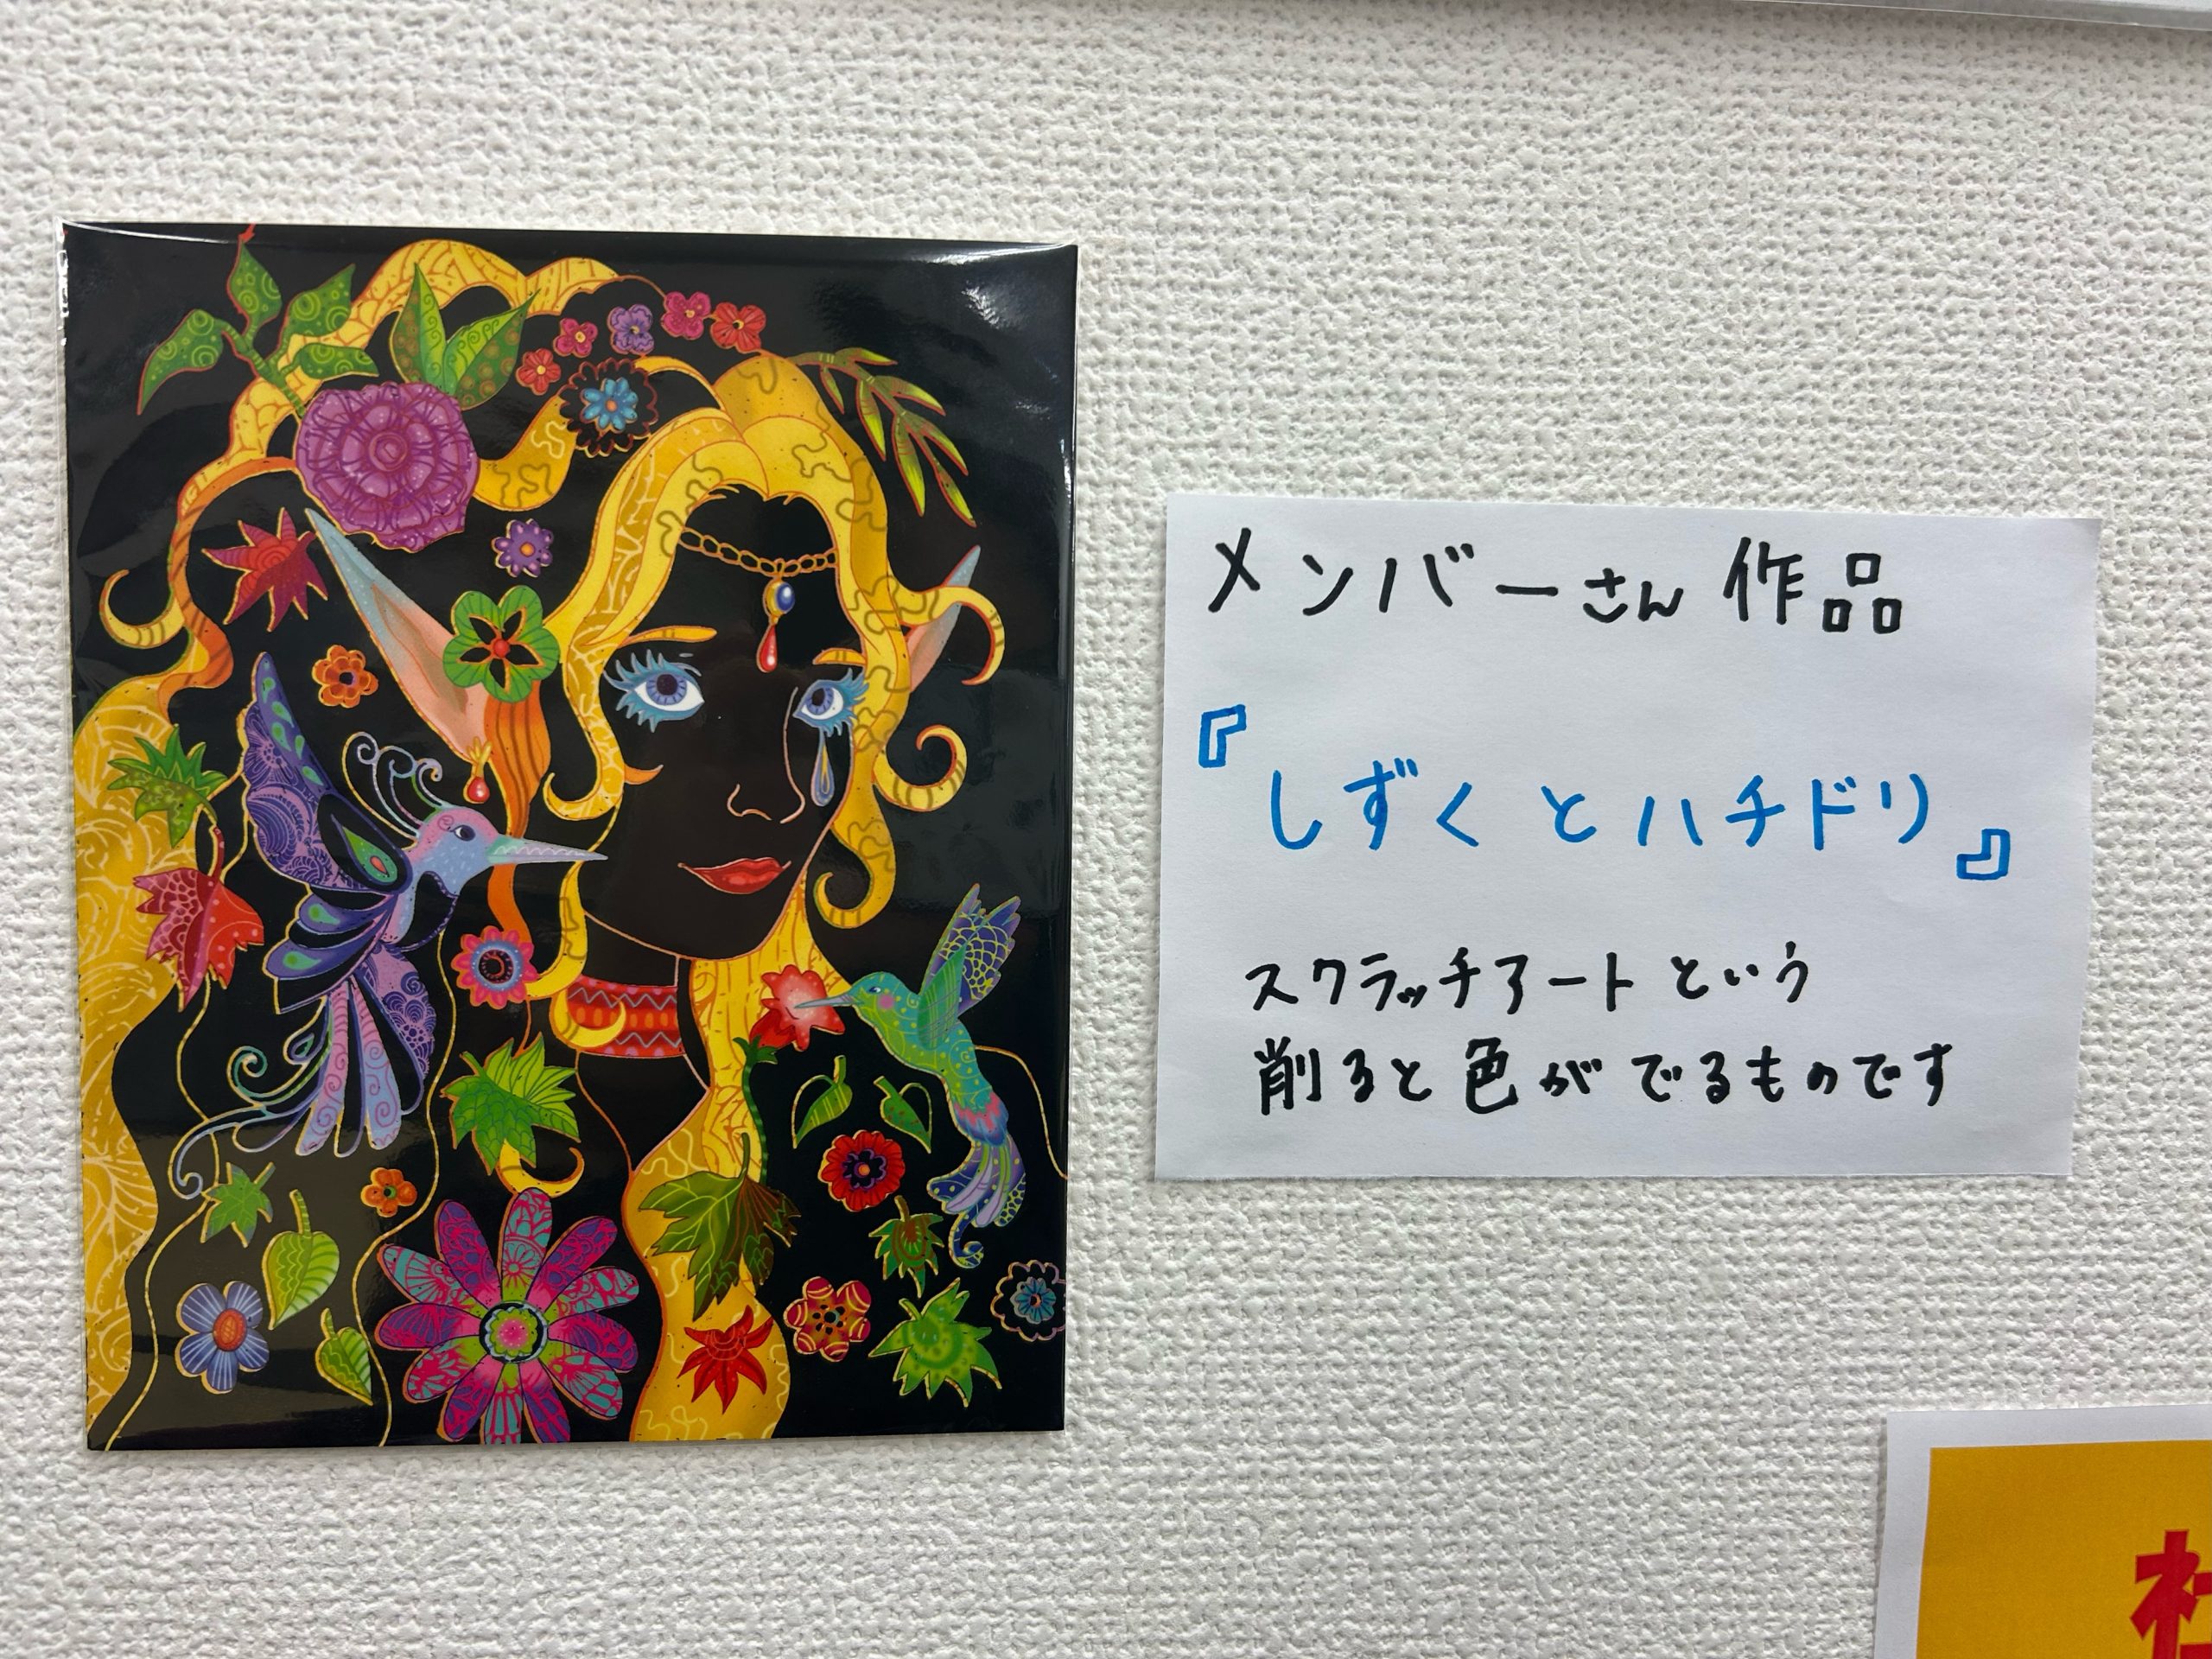 メンバーさん作品
『しずくとハチドリ』
スクラッチアートという
削ると色がでるものです